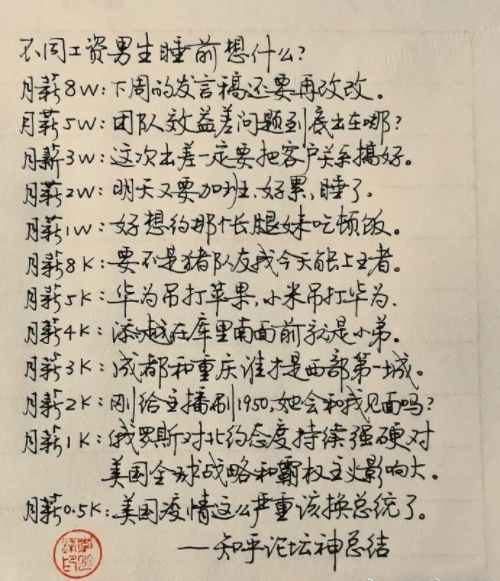 不同工资男生睡前想什么?
月薪8W:下周的发言稿还要再改改。
月薪5W:团队效益差问题到底出在哪?
月薪3W:这次出差一定要把客户关系搞好。
月薪2W:明天又要加班,好累,睡了。
月薪1W:好想约那个长腿妹吃顿饭。
月薪8K:要不是猪队友我今天能上王者。
月薪5K:华为吊打苹果,小米吊打华为.
月薪4K:浓眉在库里南面前就是小弟。
月薪3K:成都和重庆谁才是西部第一城。
月薪2K:刚给主播刷1950,她会和我见面吗?
月薪1K:俄罗斯对北约态度持续强硬对
美国全球战略和霸权主义影响大。
月薪0.5K:美国疫情这么严重该换总统了。
——知乎论坛神总结